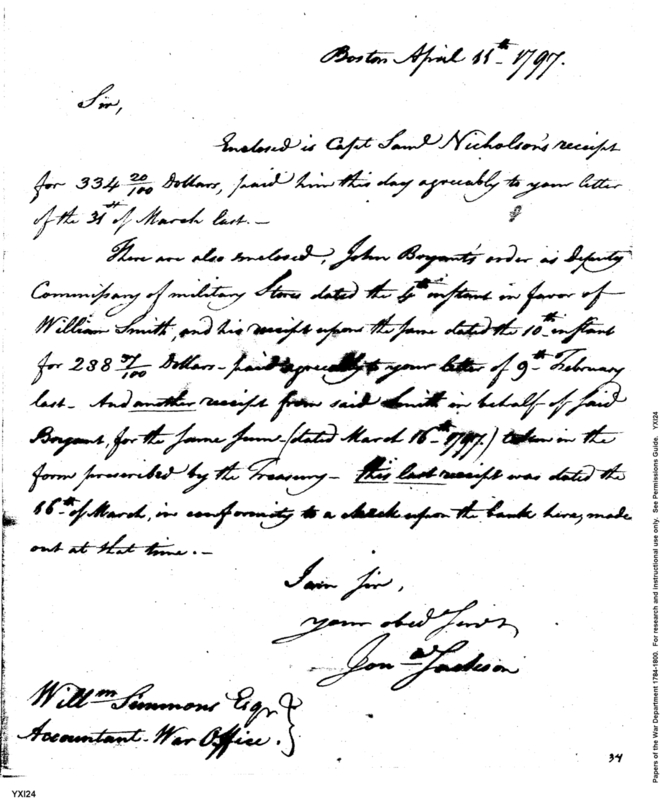 Boston April 11th 1797.
Sir,
Enclosed is Capt Saml Nicholson's receipt
for 334 20/100 Dollars, paid him this day agreeably to your letter
of the 31st of March last.—
There are also enclosed, John Bryant's order as Deputy
Commissary of military Stores dated the 4th instant in favor of
William Smith, and his receipt upon the same dated the 10th instant
for 238 37/100 Dollars - paid agreeably to your letter of 9th February
last. And another receipt from said Smith in behalf of said
Bryant, for the same sum (dated March 16th 1797.) taken in the
form prescribed by the Treasury - this last receipt was dated the
16th of March, in conformity to a check upon the bank here, made
out at that time.—
I am Sir,
your obed Servt
Jona Jackson
Willm Simmons Esqr
Accountant War Office.
34
YXI24
Papers of the War Department 1784-1800. For research and instructional use only. See Permissions Guide. YXI24